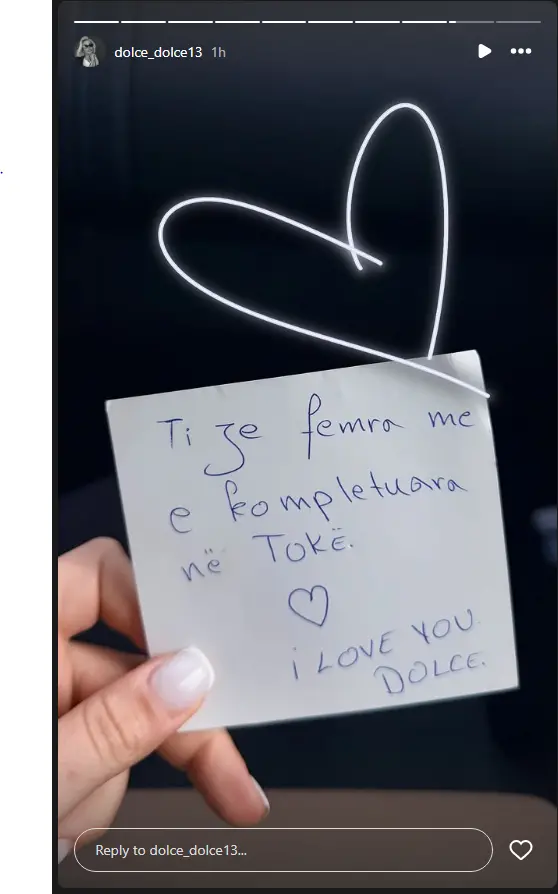 dolce_dolce13 1h
Ti je femra me
e kompletuara
në TOKË.
i LOVE YOU
DOLCE.
Reply to dolce_dolce13...